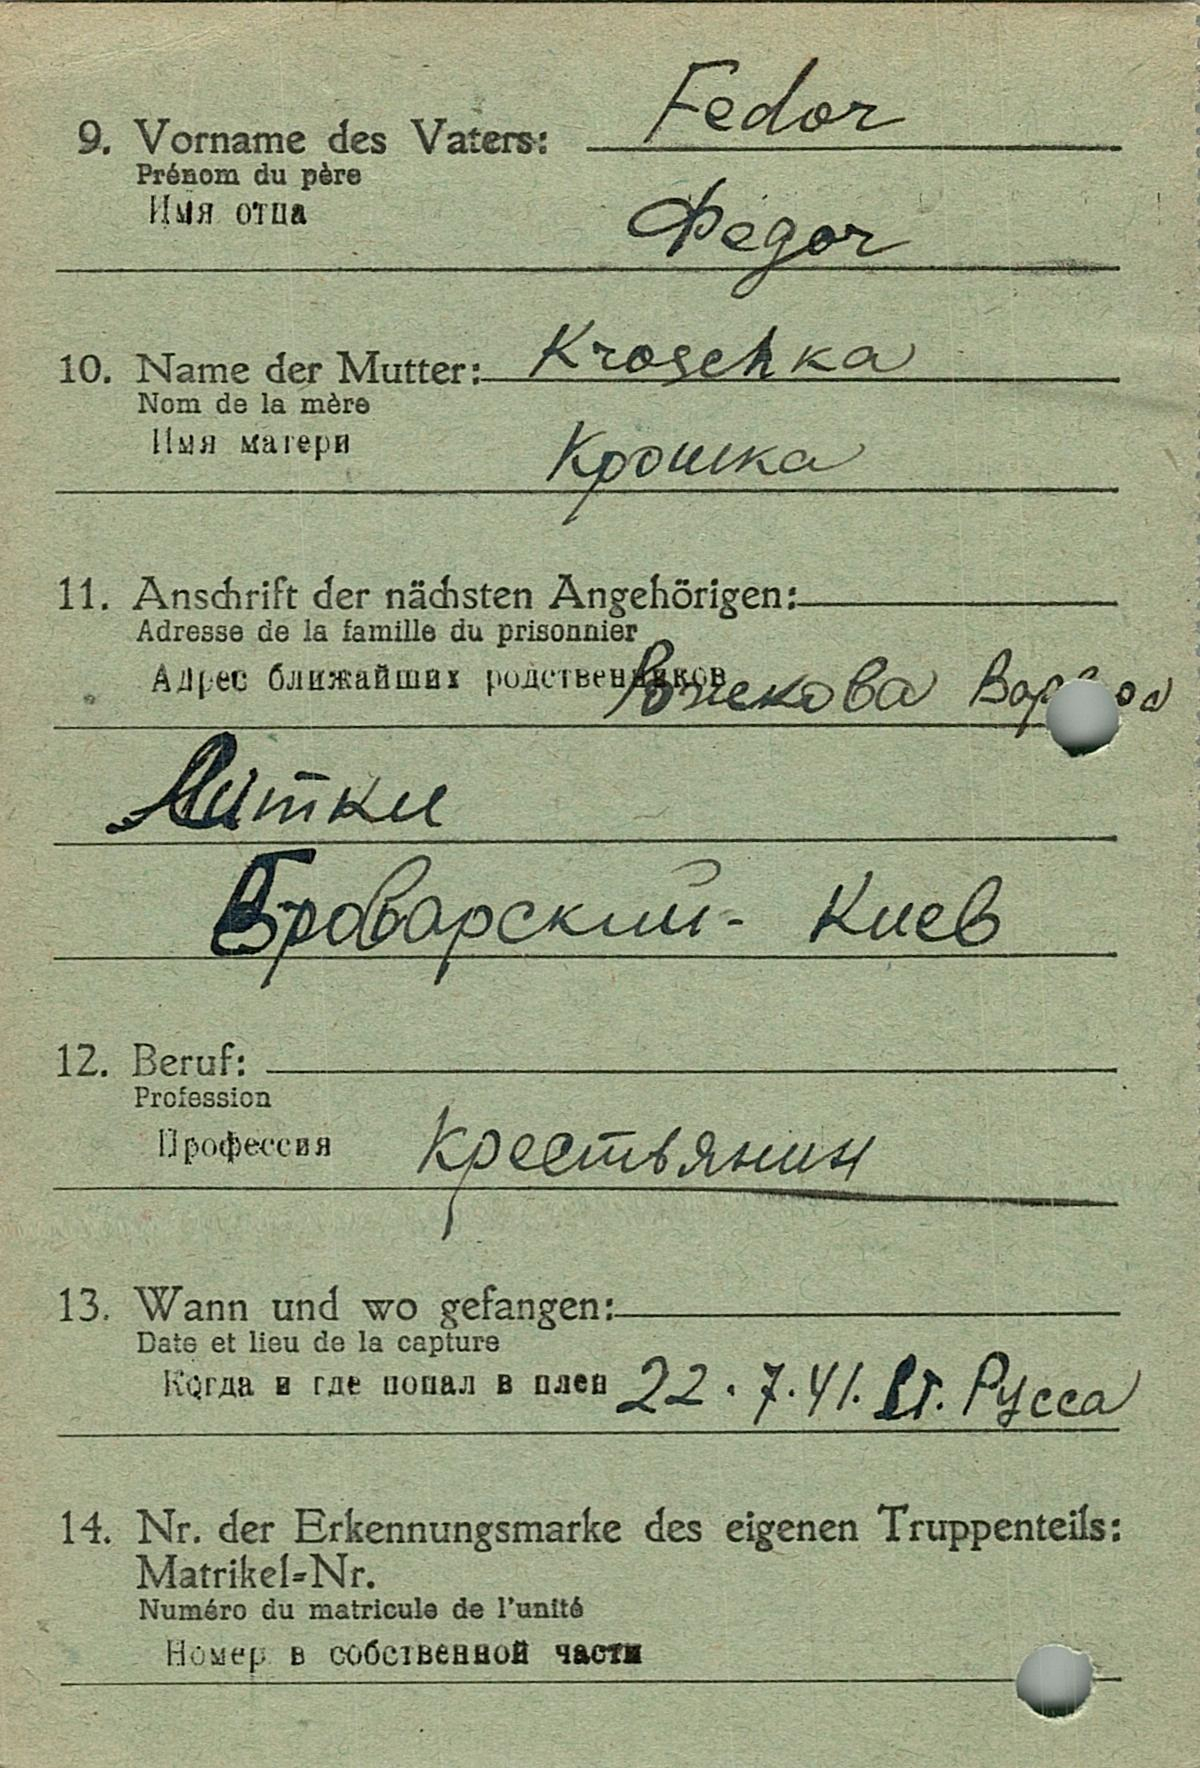 9. Vorname des Vaters: Fedor
Prénom du père
Имя отца Федor
10. Name der Mutter: Kroschka
Nom de la mère
Имя матери Крошка
11. Anschrift der nächsten Angehörigen:
Adresse de la famille du prisonnier
Адрес ближайших родственников
Литки
Броварский- Киев
12. Beruf:
Profession
Профессия Крестьянин
13. Wann und wo gefangen:
Date et lieu de la capture
Когда и где попал в плен 22.7.41. Ст. Русса
14. Nr. der Erkennungsmarke des eigenen Truppenteils:
Matrikel-Nr.
Numéro du matricule de l'unité
Номер в собственной части